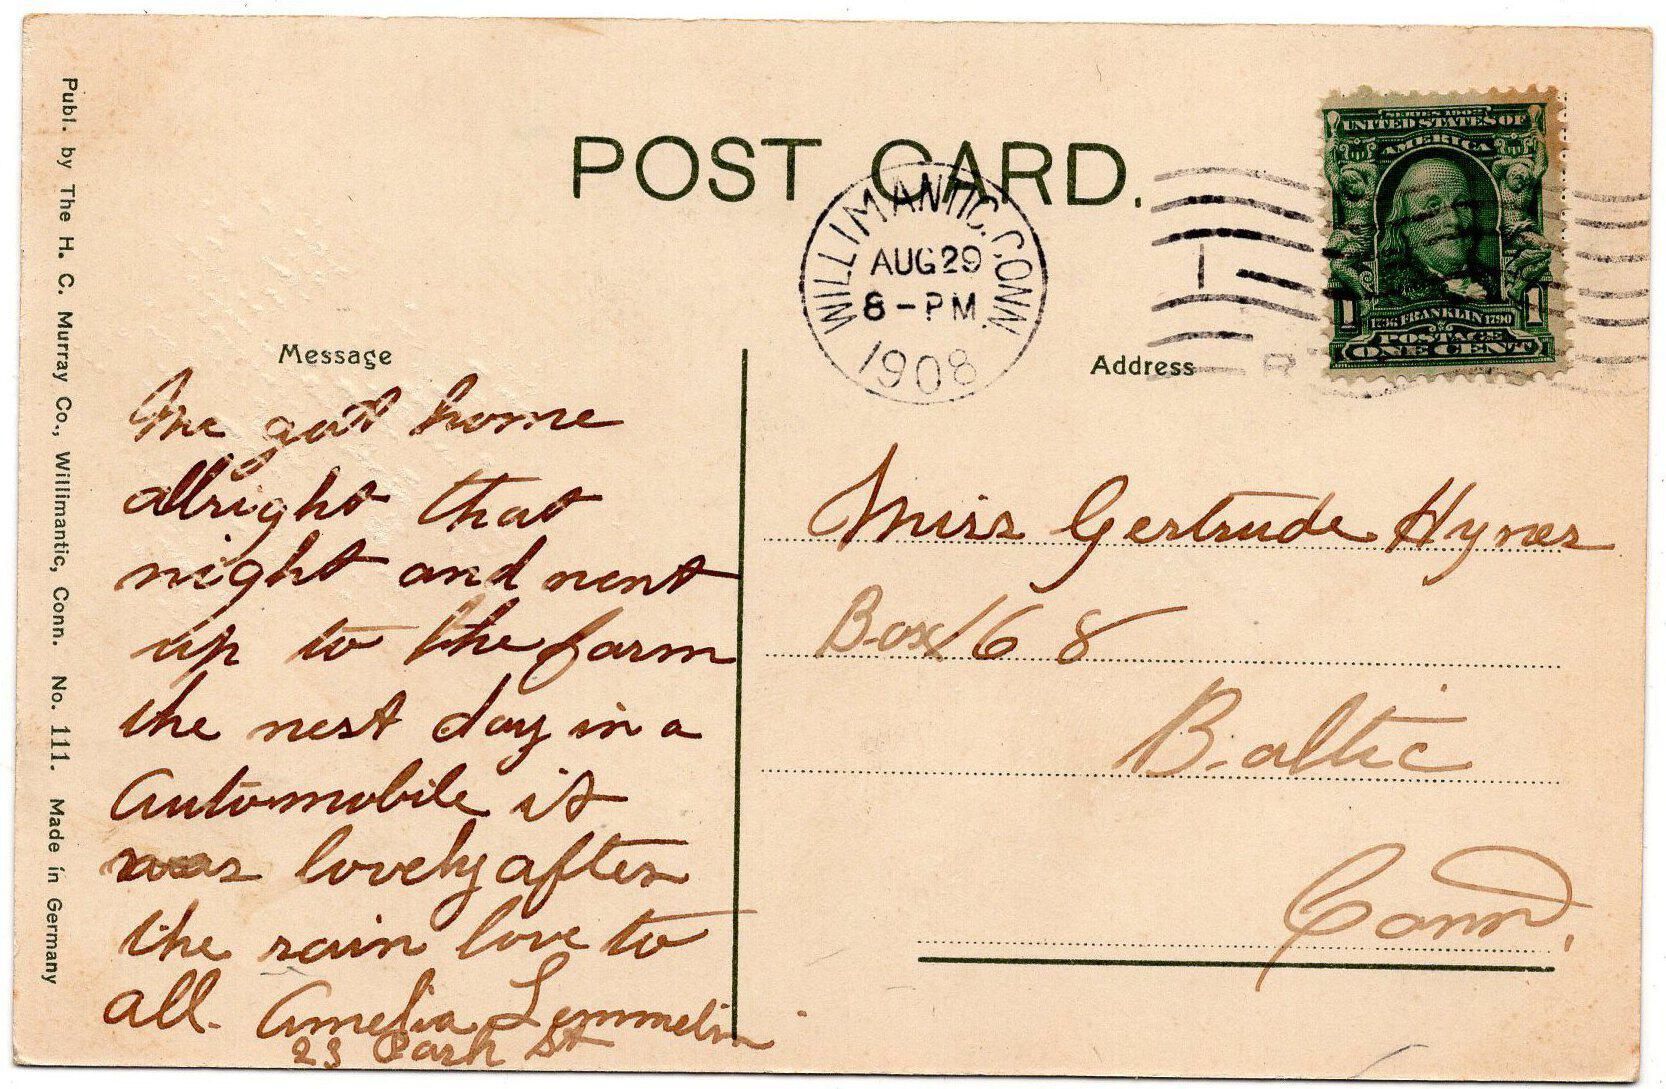 POST CARD.
WILLIMANTIC. CONN.
AUG 29
8 - PM
1908
SERIES 1902
UNITED STATES OF
AMERICA
1706 FRANKLIN 1790
POSTAGE
1 ONE CENT 1
Message
We got home
allright that
night and went
up to the farm
the next day in a
Automobile it
was lovely after
the rain love to
all. Amelia Lemmelin
23 Park St
Address
Miss Gertrude Hynes
Box 168
Baltic
Conn.
Publ. by The H. C. Murray Co., Willimantic, Conn. No. 111. Made in Germany